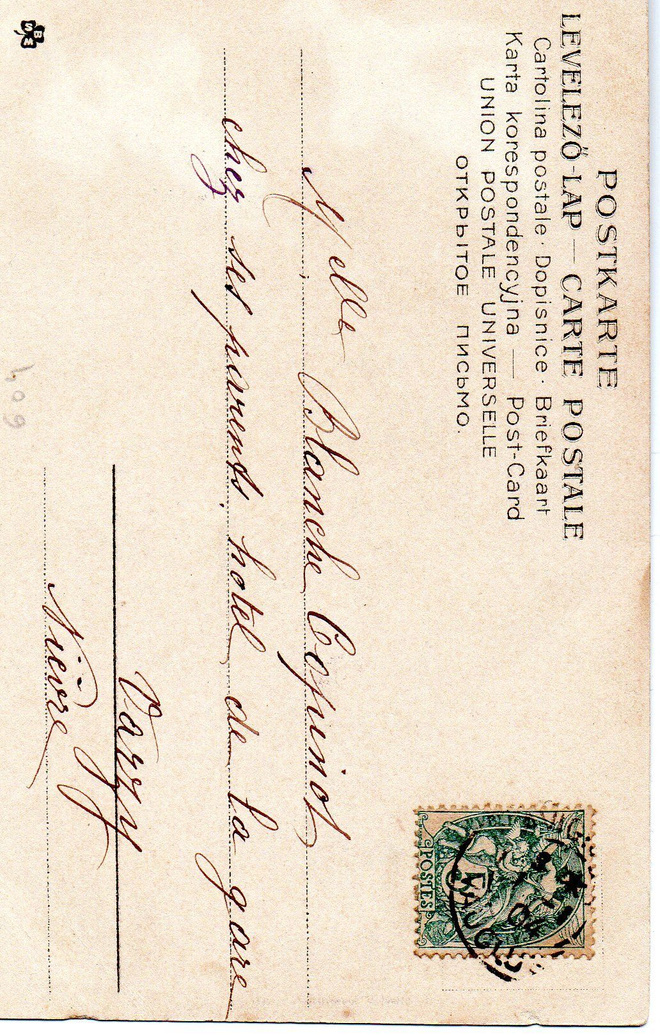 POSTKARTE
LEVELEZŐ-LAP — CARTE POSTALE
Cartolina postale · Dopisnice · Briefkaart
Karta korespondencyjna — Post-Card
UNION POSTALE UNIVERSELLE
ОТКРЫТОЕ ПИСЬМО.
POSTES
5
VAUCLUSE
04
Melle Blanche Copinot
chez ses parents, hotel de la gare
Varzy
Nièvre
SBW
409